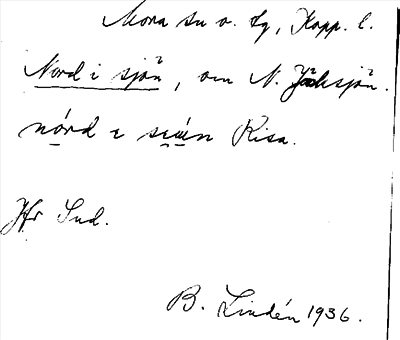 Mora sn o. tg, Kopp. l.
Nord i sjön, om N. Jäcksjön.
nórd ɩ sɩǿn Risa.
Jfr Sud.
B. Lindén 1936.